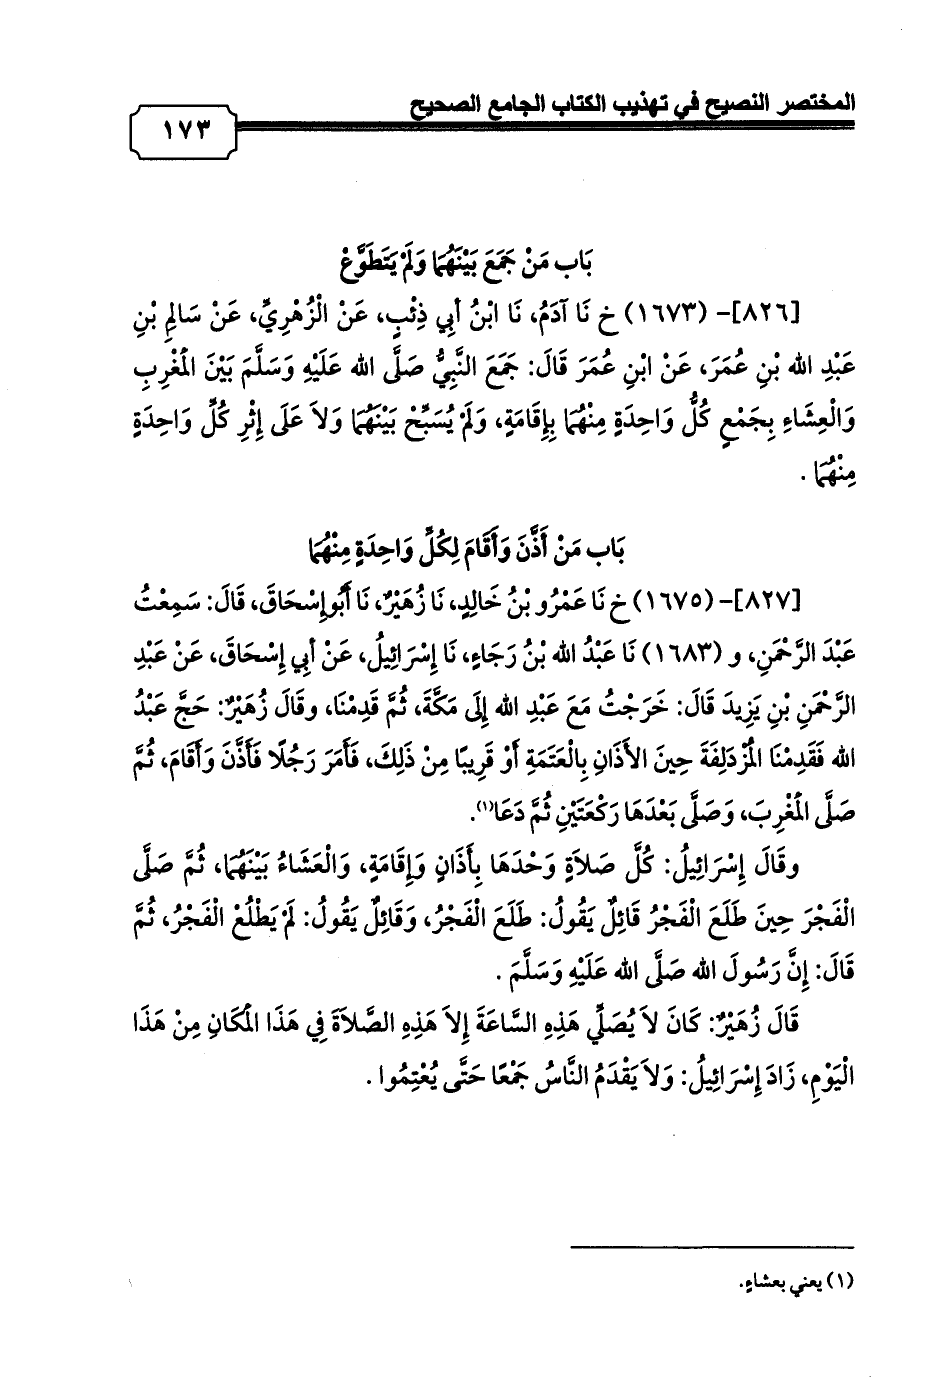 المختصر النصيح في تهذيب الكتاب الجامع الصحيح
١٧٣
بَاب مَنْ جَمَعَ بَيْنَهُمَا وَلَمْ يَتَطَوَّعْ
[٨٢٦]- (١٦٧٣) خ نَا آدَمُ، نَا ابْنُ أبِي ذِئْبٍ، عَنْ الْزُهْرِيِّ، عَنْ سَالِمِ بْنِ
عَبْدِ الله بْنِ عُمَرَ، عَنْ ابْنِ عُمَرَ قَالَ: جَمَعَ النَّبِيُّ صَلَّى الله عَلَيْهِ وَسَلَّمَ بَيْنَ الْمَغْرِبِ
وَالْعِشَاءِ بِجَمْعٍ كُلُّ وَاحِدَةٍ مِنْهُمَا بِإِقَامَةٍ، وَلَمْ يُسَبِّحْ بَيْنَهُمَا وَلاَ عَلَى إِثْرِ كُلِّ وَاحِدَةٍ
مِنْهُمَا .
بَاب مَنْ أَذَّنَ وَأَقَامَ لِكُلِّ وَاحِدَةٍ مِنْهُمَا
[٨٢٧]- (١٦٧٥) خ نَا عَمْرُو بْنُ خَالِدٍ، نَا زُهَيْرٌ، نَا أَبُوإِسْحَاقَ، قَالَ: سَمِعْتُ
عَبْدَ الرَّحْمَنِ، و (١٦٨٣) نَا عَبْدُ الله بْنُ رَجَاءٍ، نَا إِسْرَائِيلُ، عَنْ أبِي إِسْحَاقَ، عَنْ عَبْدِ
الرَّحْمَنِ بْنِ يَزِيدَ قَالَ: خَرَجْتُ مَعَ عَبْدِ الله إِلَى مَكَّةَ، ثُمَّ قَدِمْنَا، وقَالَ زُهَيْرٌ: حَجَّ عَبْدُ
الله فَقَدِمْنَا الْمُزْدَلِفَةَ حِينَ الأَذَانِ بِالْعَتَمَةِ أَوْ قَرِيبًا مِنْ ذَلِكَ، فَأَمَرَ رَجُلًا فَأَذَّنَ وَأَقَامَ، ثُمَّ
صَلَّى الْمَغْرِبَ، وَصَلَّى بَعْدَهَا رَكْعَتَيْنِ ثُمَّ دَعَا(١).
وقَالَ إِسْرَائِيلُ: كُلَّ صَلاَةٍ وَحْدَهَا بِأَذَانٍ وَإِقَامَةٍ، وَالْعَشَاءُ بَيْنَهُمَا، ثُمَّ صَلَّى
الْفَجْرَ حِينَ طَلَعَ الْفَجْرُ قَائِلٌ يَقُولُ: طَلَعَ الْفَجْرُ، وَقَائِلٌ يَقُولُ: لَمْ يَطْلُعْ الْفَجْرُ، ثُمَّ
قَالَ: إِنَّ رَسُولَ الله صَلَّى الله عَلَيْهِ وَسَلَّمَ .
قَالَ زُهَيْرٌ: كَانَ لاَ يُصَلِّي هَذِهِ السَّاعَةَ إِلاَ هَذِهِ الصَّلاَةَ فِي هَذَا الْمَكَانِ مِنْ هَذَا
الْيَوْمِ، زَادَ إِسْرَائِيلُ: وَلاَ يَقْدَمُ النَّاسُ جَمْعًا حَتَّى يُعْتِمُوا .
(١) يعني بعشاءٍ.